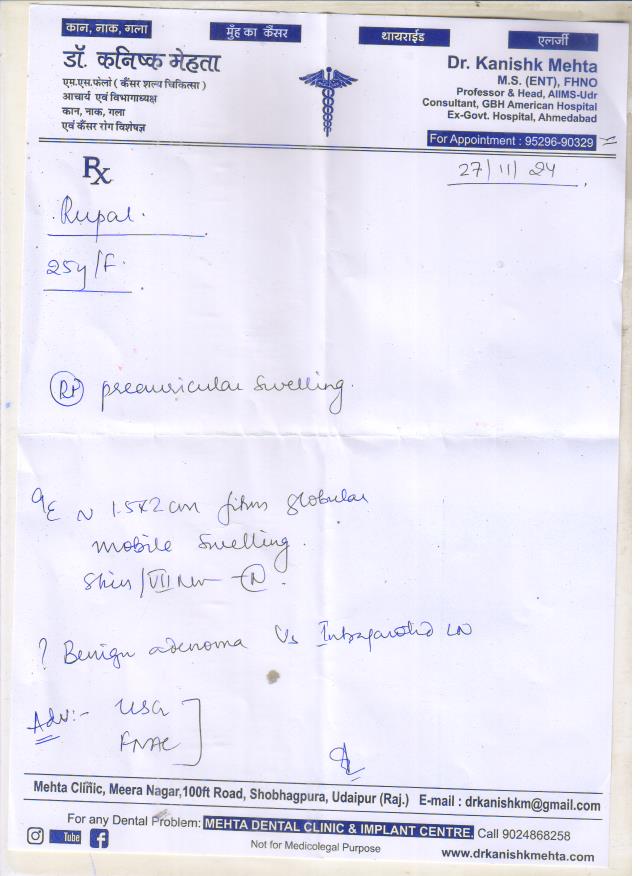 कान, नाक, गला
मुँह का कैंसर
थायराईड
एलर्जी
डॉ. कनिष्क मेहता
एम.एस.फेलो ( कैंसर शल्य चिकित्सा )
आचार्य एवं विभागाध्यक्ष
कान, नाक, गला
एवं कैंसर रोग विशेषज्ञ
Dr. Kanishk Mehta
M.S. (ENT), FHNO
Professor & Head, AIIMS-Udr
Consultant, GBH American Hospital
Ex-Govt. Hospital, Ahmedabad
For Appointment : 95296-90329
Rx
27/11/24
Rupal.
25y/F.
Rt preauricular swelling.
O/E ~ 1.5x2 cm firm globular
mobile swelling.
Skin/VII Nerv - N.
? Benign adenoma Vs Intraparotid LN
Adv:- USG
FNAC
Mehta Clinic, Meera Nagar,100ft Road, Shobhagpura, Udaipur (Raj.) E-mail : drkanishkm@gmail.com
For any Dental Problem: MEHTA DENTAL CLINIC & IMPLANT CENTRE. Call 9024868258
Tube
Not for Medicolegal Purpose
www.drkanishkmehta.com